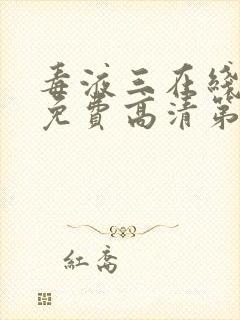 毒液三在线
免费高清第
红乔